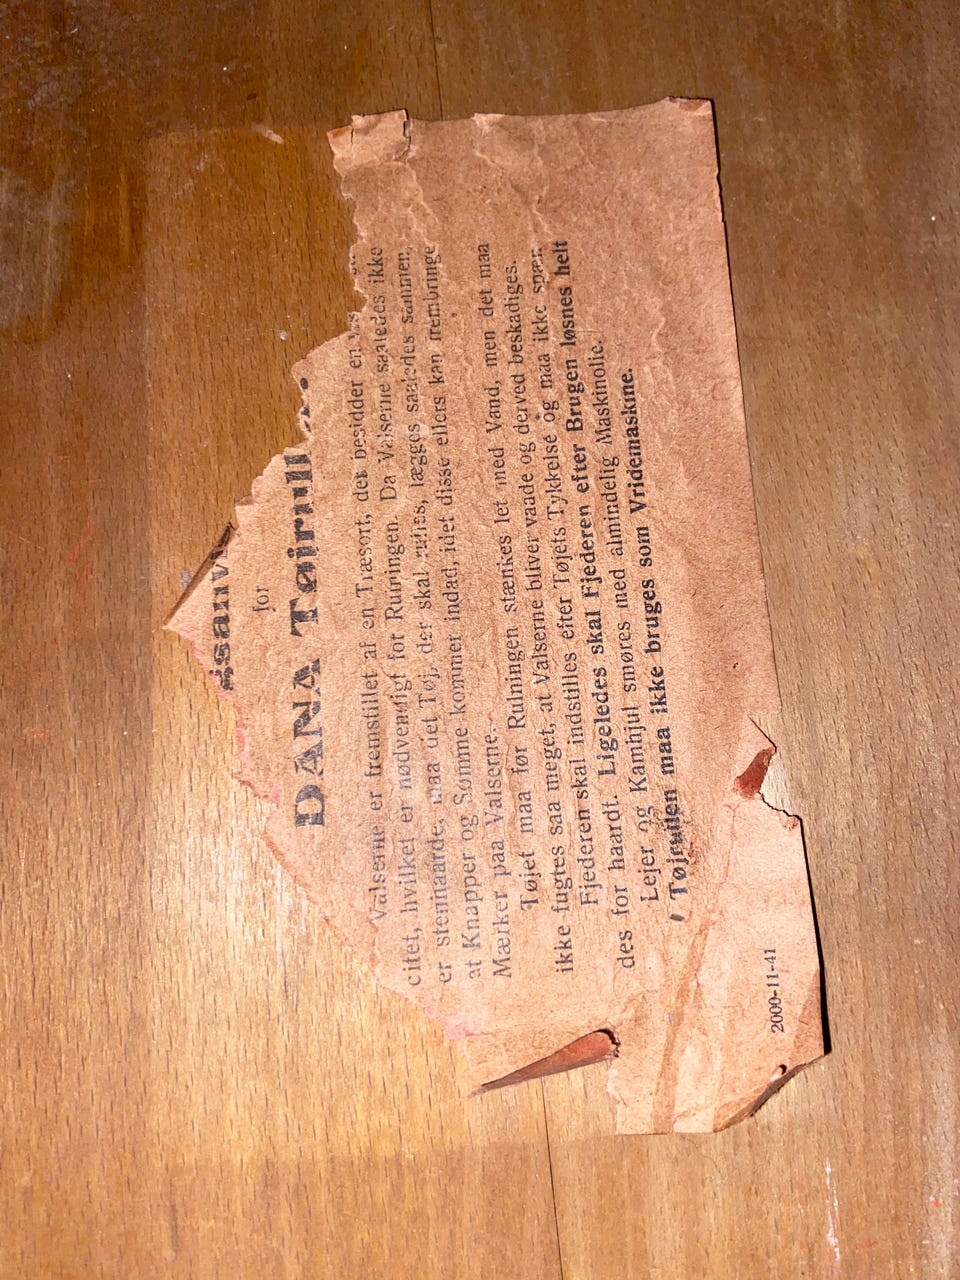 gsanv
for
DANA Tøjrull
Valserne er fremstillet af en Træsort, der besidder en
citet, hvilket er nødvendigt for Rulningen. Da Valserne saaledes ikke
er stenhaarde, maa det Tøj, der skal rulles, lægges saaledes sammen,
at Knapper og Sømme kommer indad, idet disse ellers kan frembringe
Mærker paa Valserne.
Tøjet maa før Rulningen stænkes let med Vand, men det maa
ikke fugtes saa meget, at Valserne bliver vaade og derved beskadiges.
Fjederen skal indstilles efter Tøjets Tykkelse og maa ikke spæn-
des for haardt. Ligeledes skal Fjederen efter Brugen løsnes helt
Lejer og Kamhjul smøres med almindelig Maskinolie.
Tøjrullen maa ikke bruges som Vridemaskine.
2000-11-41